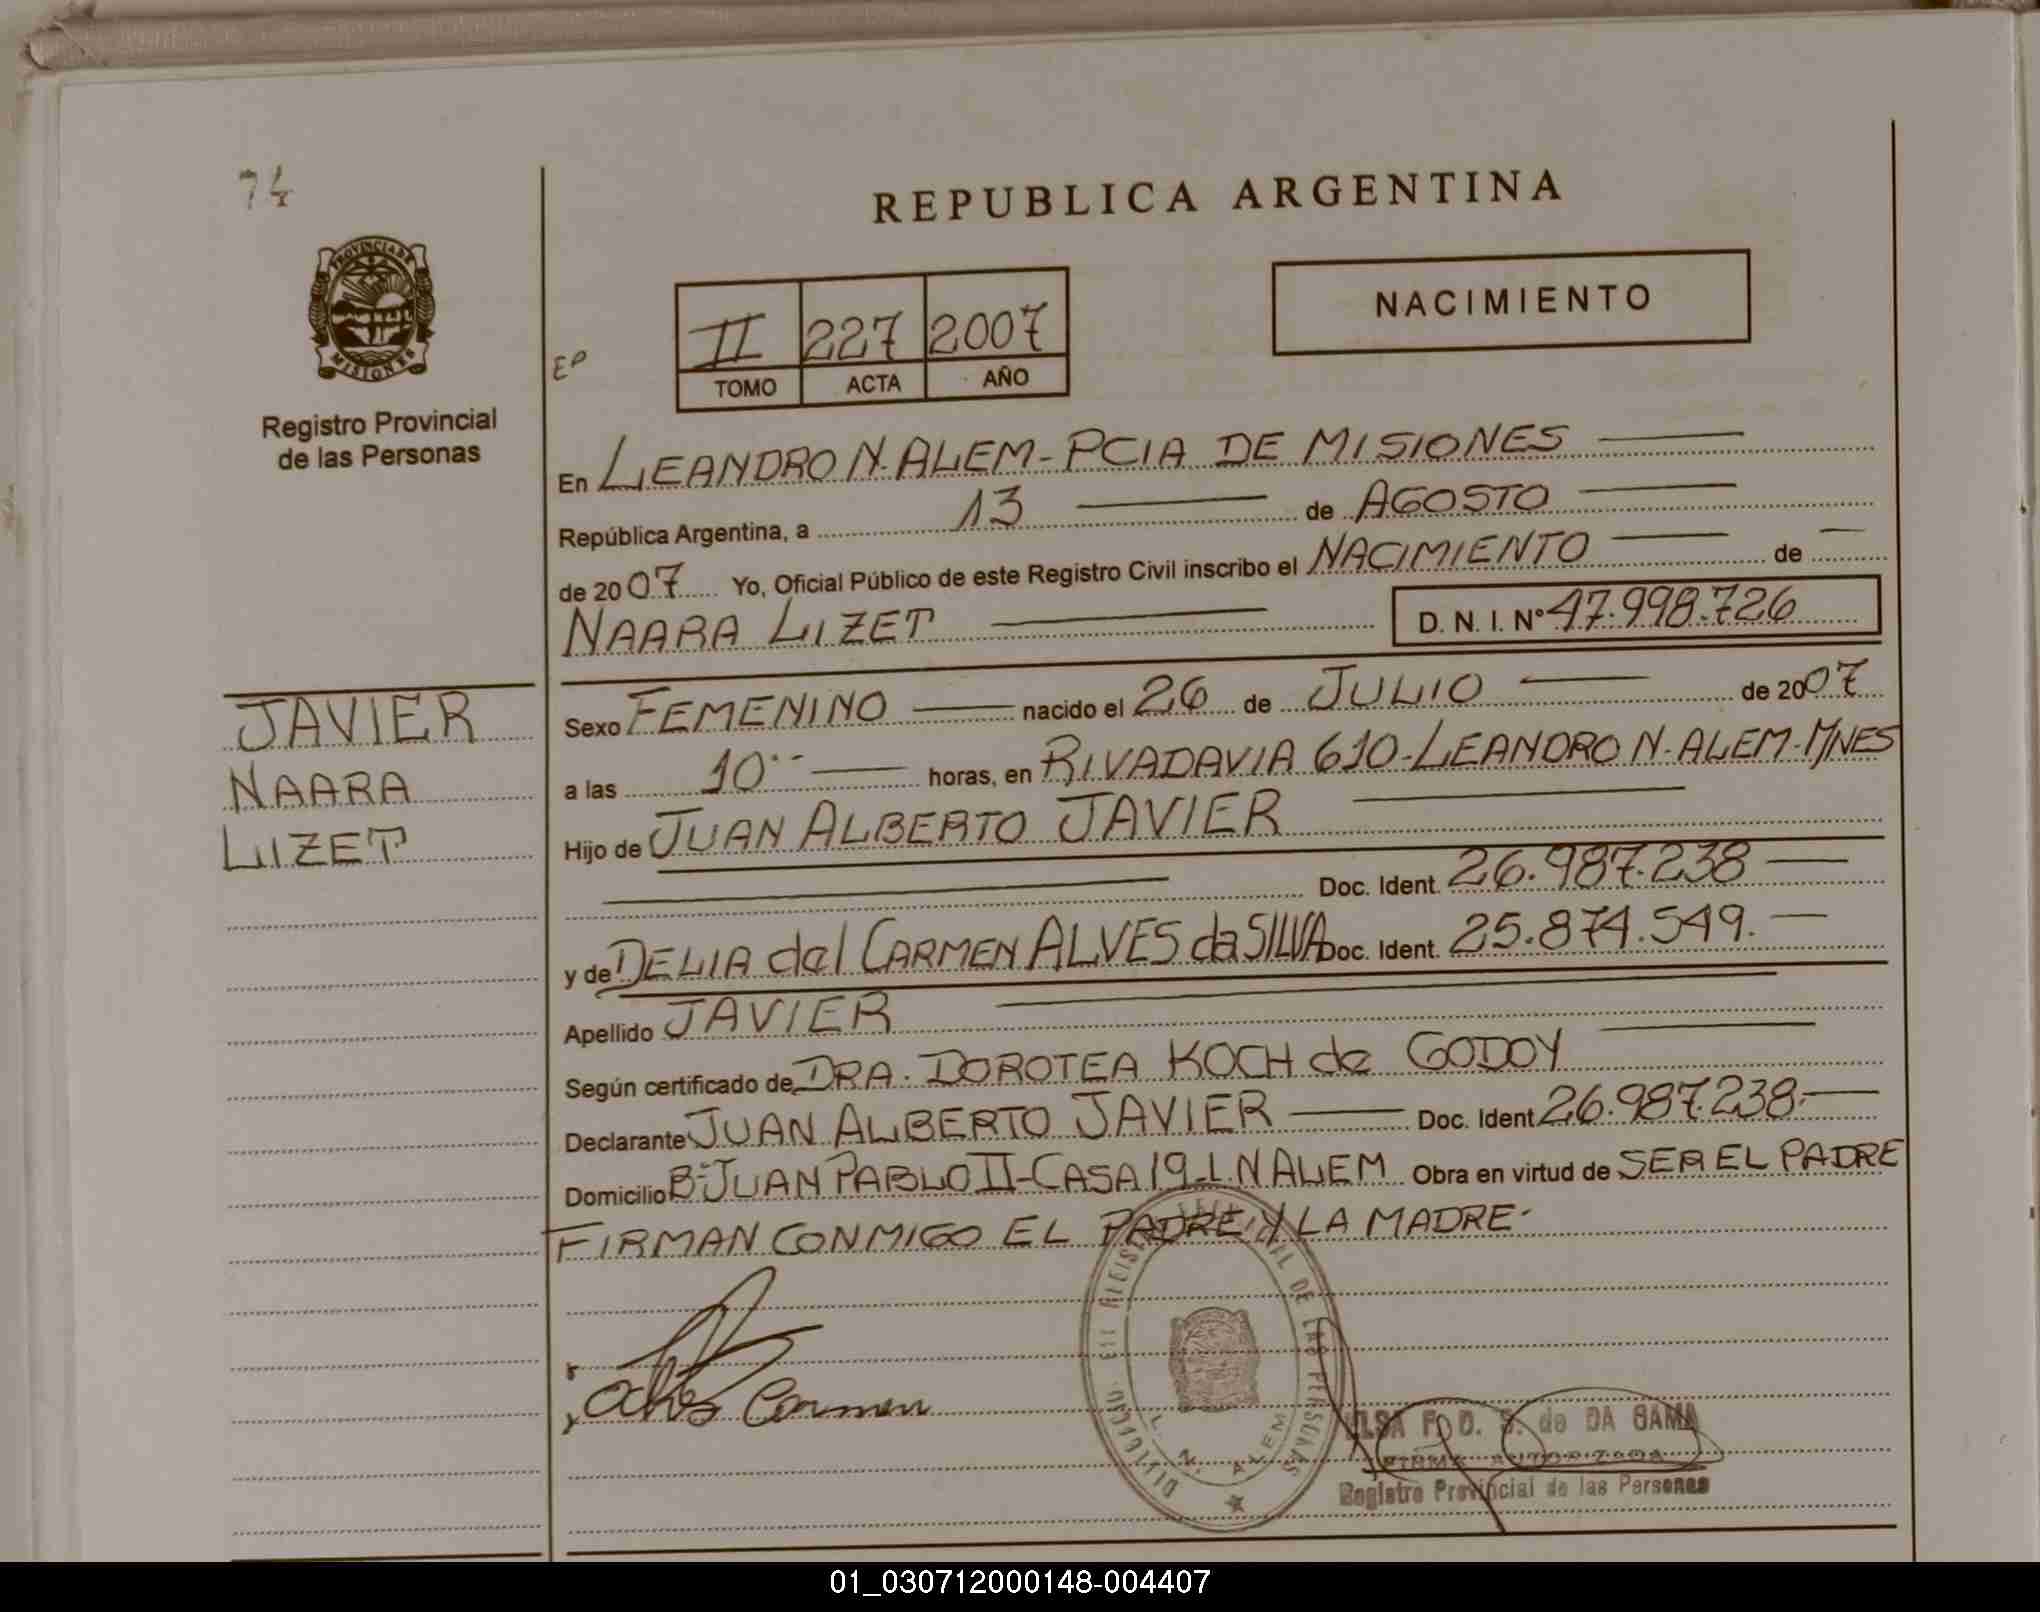 74
REPUBLICA ARGENTINA
PROVINCIA DE
MISIONES
Registro Provincial
de las Personas
NACIMIENTO
EP
II 227 2007
TOMO ACTA AÑO
En LEANDRO N. ALEM - PCIA DE MISIONES
República Argentina, a 13 de AGOSTO
de 2007 Yo, Oficial Público de este Registro Civil inscribo el NACIMIENTO de
NAARA LIZET D. N. I. Nº 47.998.726
JAVIER
NAARA
LIZET
Sexo FEMENINO nacido el 26 de JULIO de 2007
a las 10 horas, en RIVADAVIA 610-LEANDRO N. ALEM-MNES
Hijo de JUAN ALBERTO JAVIER
Doc. Ident. 26.987.238
y de DELIA del CARMEN ALVES da SILVA Doc. Ident. 25.874.549.
Apellido JAVIER
Según certificado de DRA. DOROTEA KOCH de GODOY
Declarante JUAN ALBERTO JAVIER Doc. Ident 26.987.238.
Domicilio Bº JUAN PABLO II-CASA 19-L.N ALEM Obra en virtud de SER EL PADRE
FIRMAN CONMIGO EL PADRE Y LA MADRE.
Alves Carmen
DE LAS PERSONAS
L. N. ALEM
F. D. S. de DA GAMA
FIRMA AUTORIZADA
Registro Provincial de las Personas
01_030712000148-004407